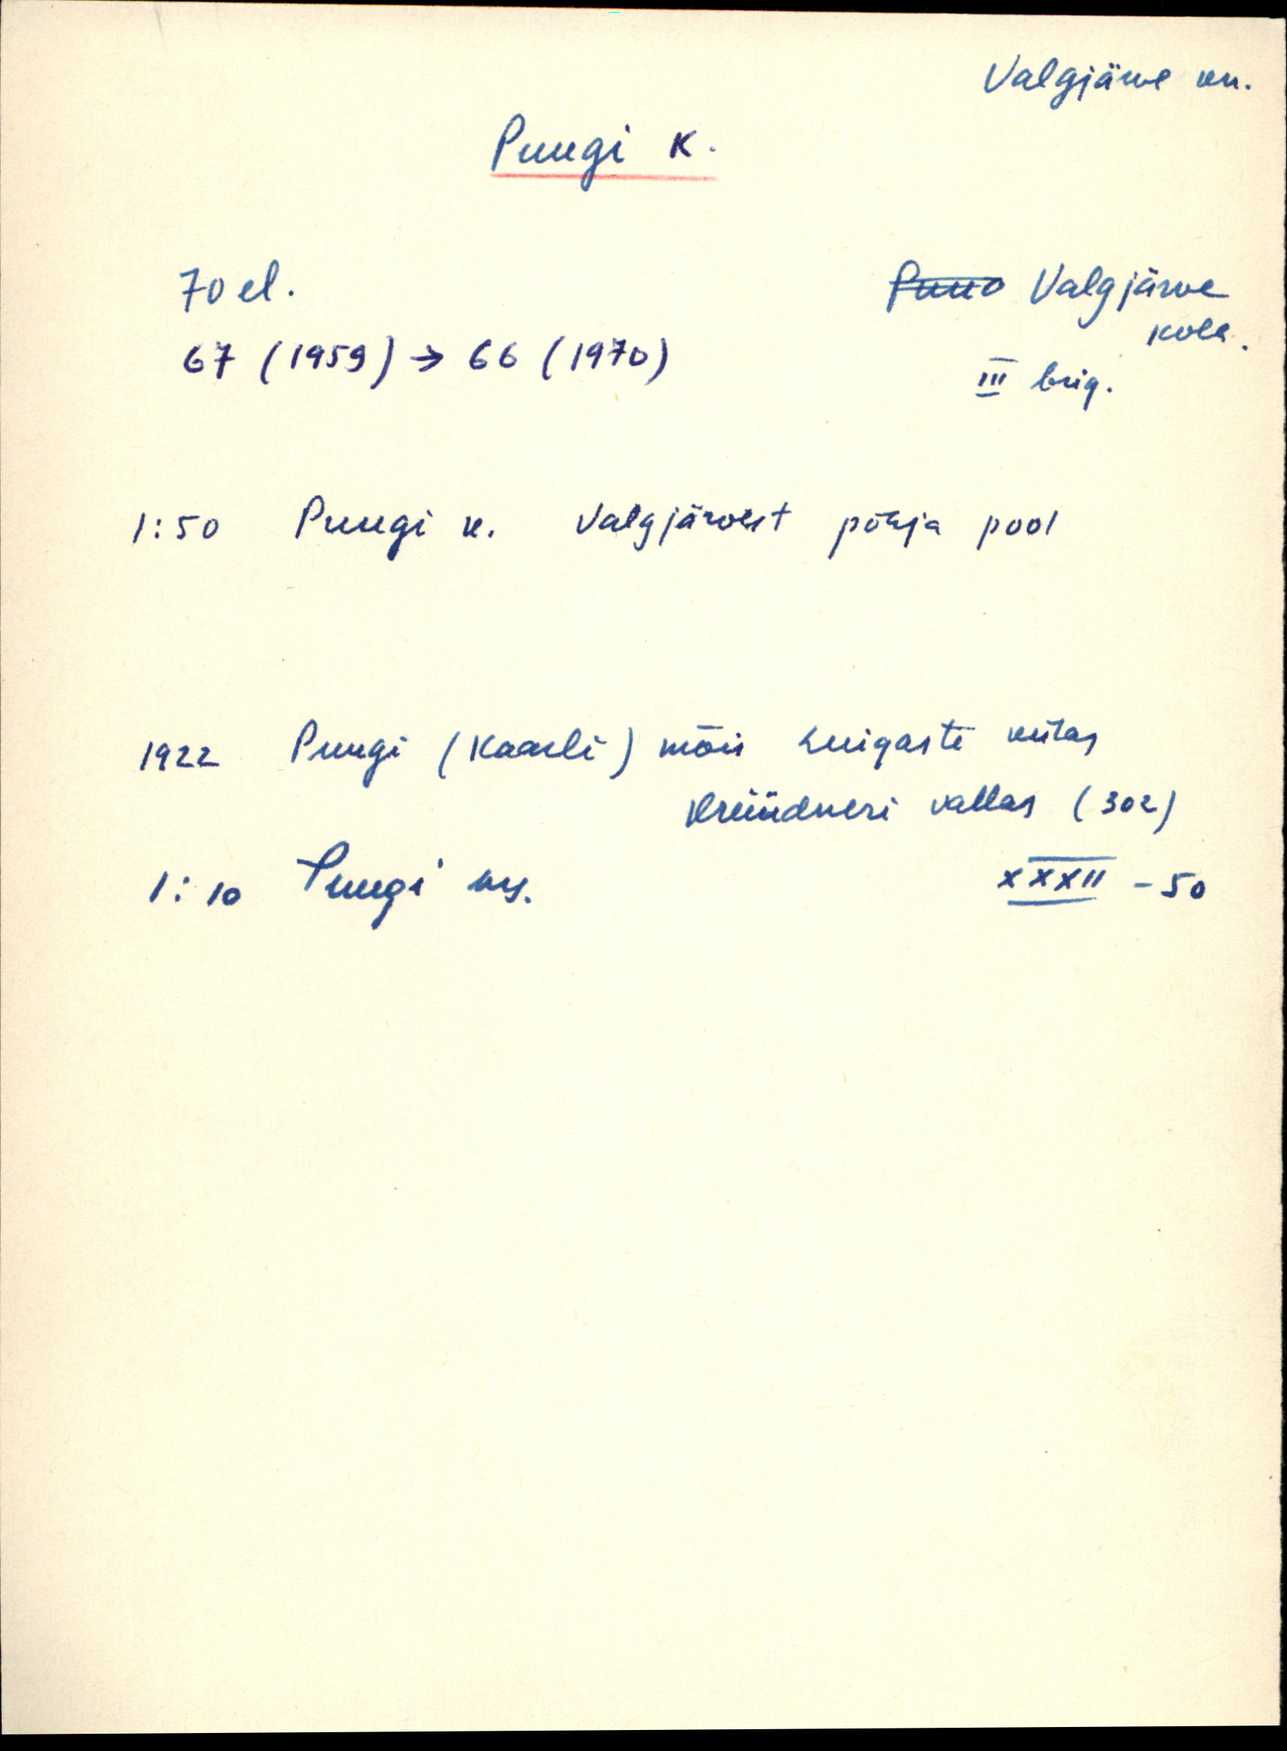 Valgjärve kn.
Puugi K.
70 el.
Puuo Valgjärve
kolh.
67 (1959) → 66 (1970)
III brig.
1:50 Puugi k. Valgjärvest põhja pool
1922 Puugi (Kaarli) mõis Suigaste külas
Krüüdneri vallas (302)
1:10 Puugi as. XXXII - 50